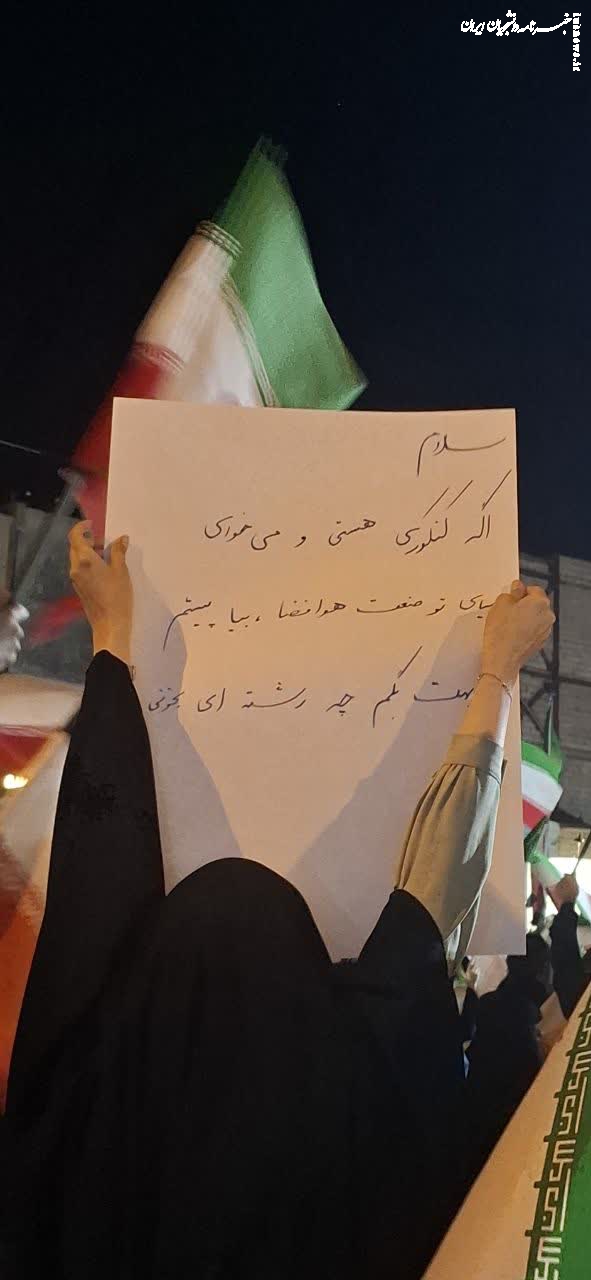 خبرنامه دانشجویان ایران
iusnews.ir
سلام
اگه کنکوری هستی و می خوای
بیای تو صنعت هوافضا، بیا پیشم
بهت بگم چه رشته ای بخونی